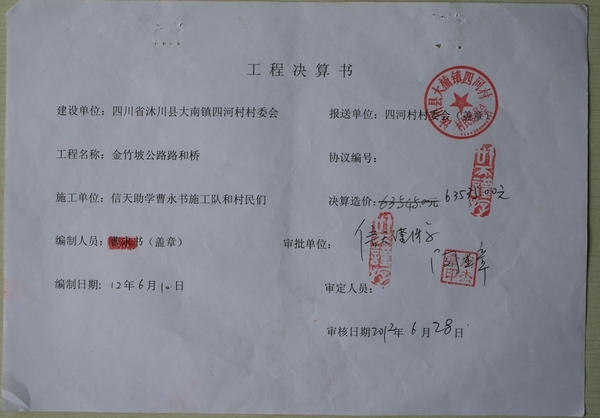 工程决算书
建设单位：四川省沐川县大南镇四河村村委会
报送单位：四河村村委会（盖章）
工程名称：金竹坡公路路和桥
协议编号：
施工单位：信天助学曹永书施工队和村民们
决算造价：63545.00元
编制人员：书（盖章）
审批单位：信天
编制日期：12年6月10日
审定人员：
审核日期2012年6月28日